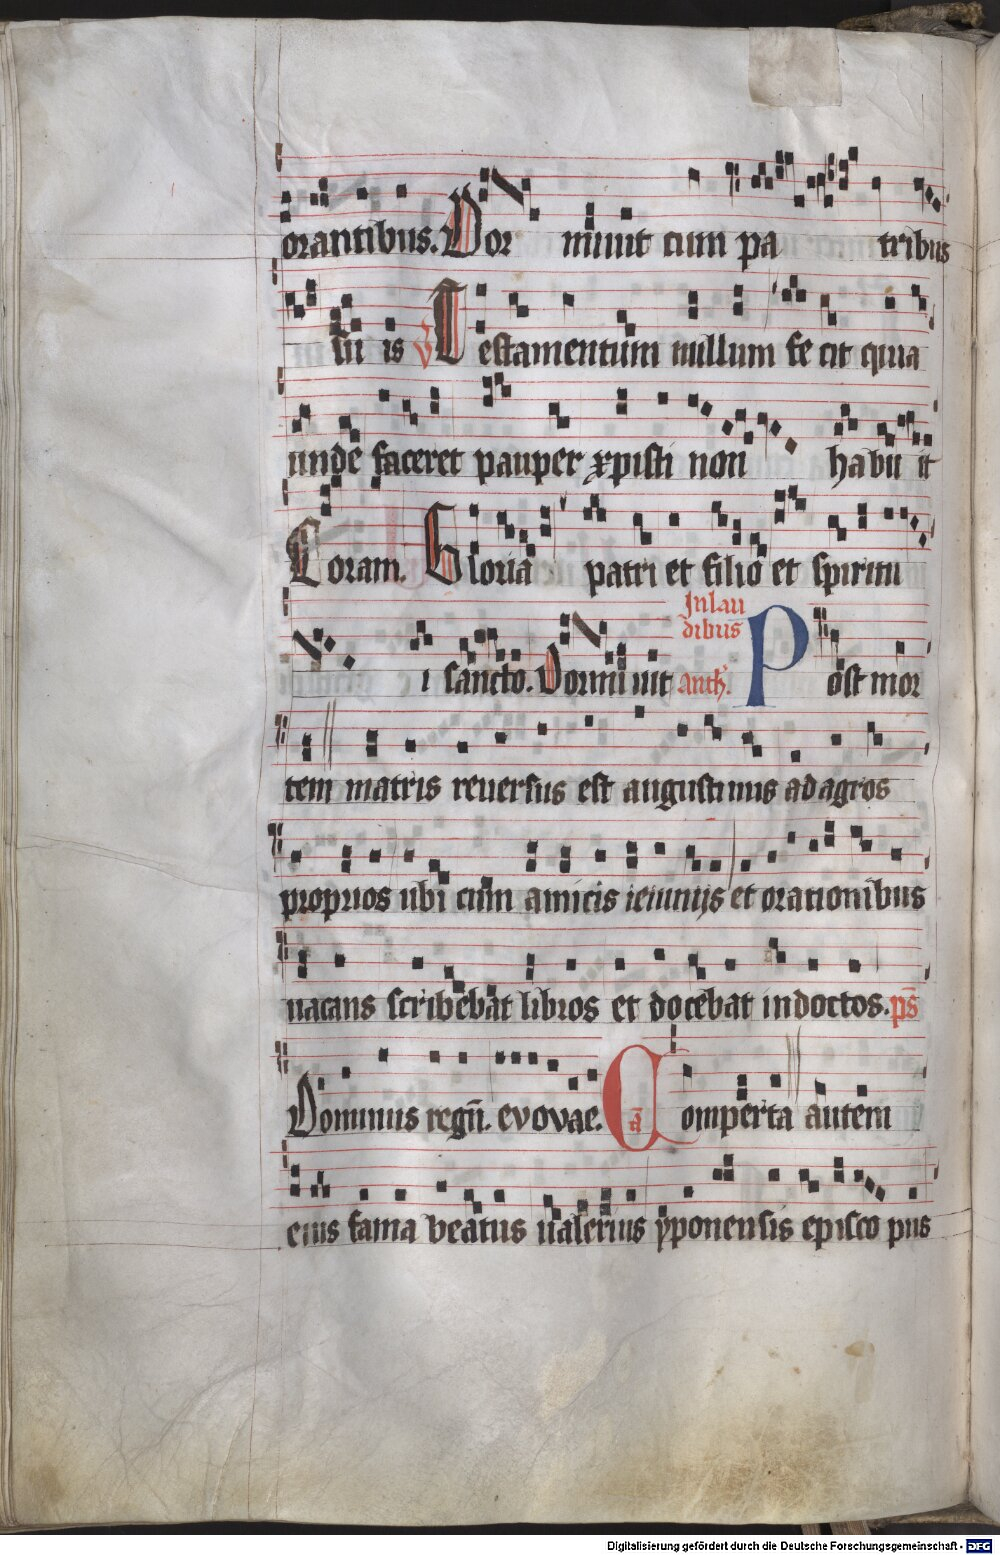 orantibus. Dor miuit cum pa tribus
su is V Testamentum nullum fe cit quia
unde faceret pauper xpisti non habu it
Coram. Gloria patri et filio et spiritu
In lau
dibus
i sancto. Dormiuit Anth. Post mor
tem matris reuersus est augustinus ad agros
proprios ubi cum amicis ieiunijs et orationibus
uacans scribebat libros et docebat indoctos. ps̄
Dominus regn̄. evovae. a Comperta autem
eius fama beatus ualerius yponensis episco pus
Digitalisierung gefördert durch die Deutsche Forschungsgemeinschaft - DFG